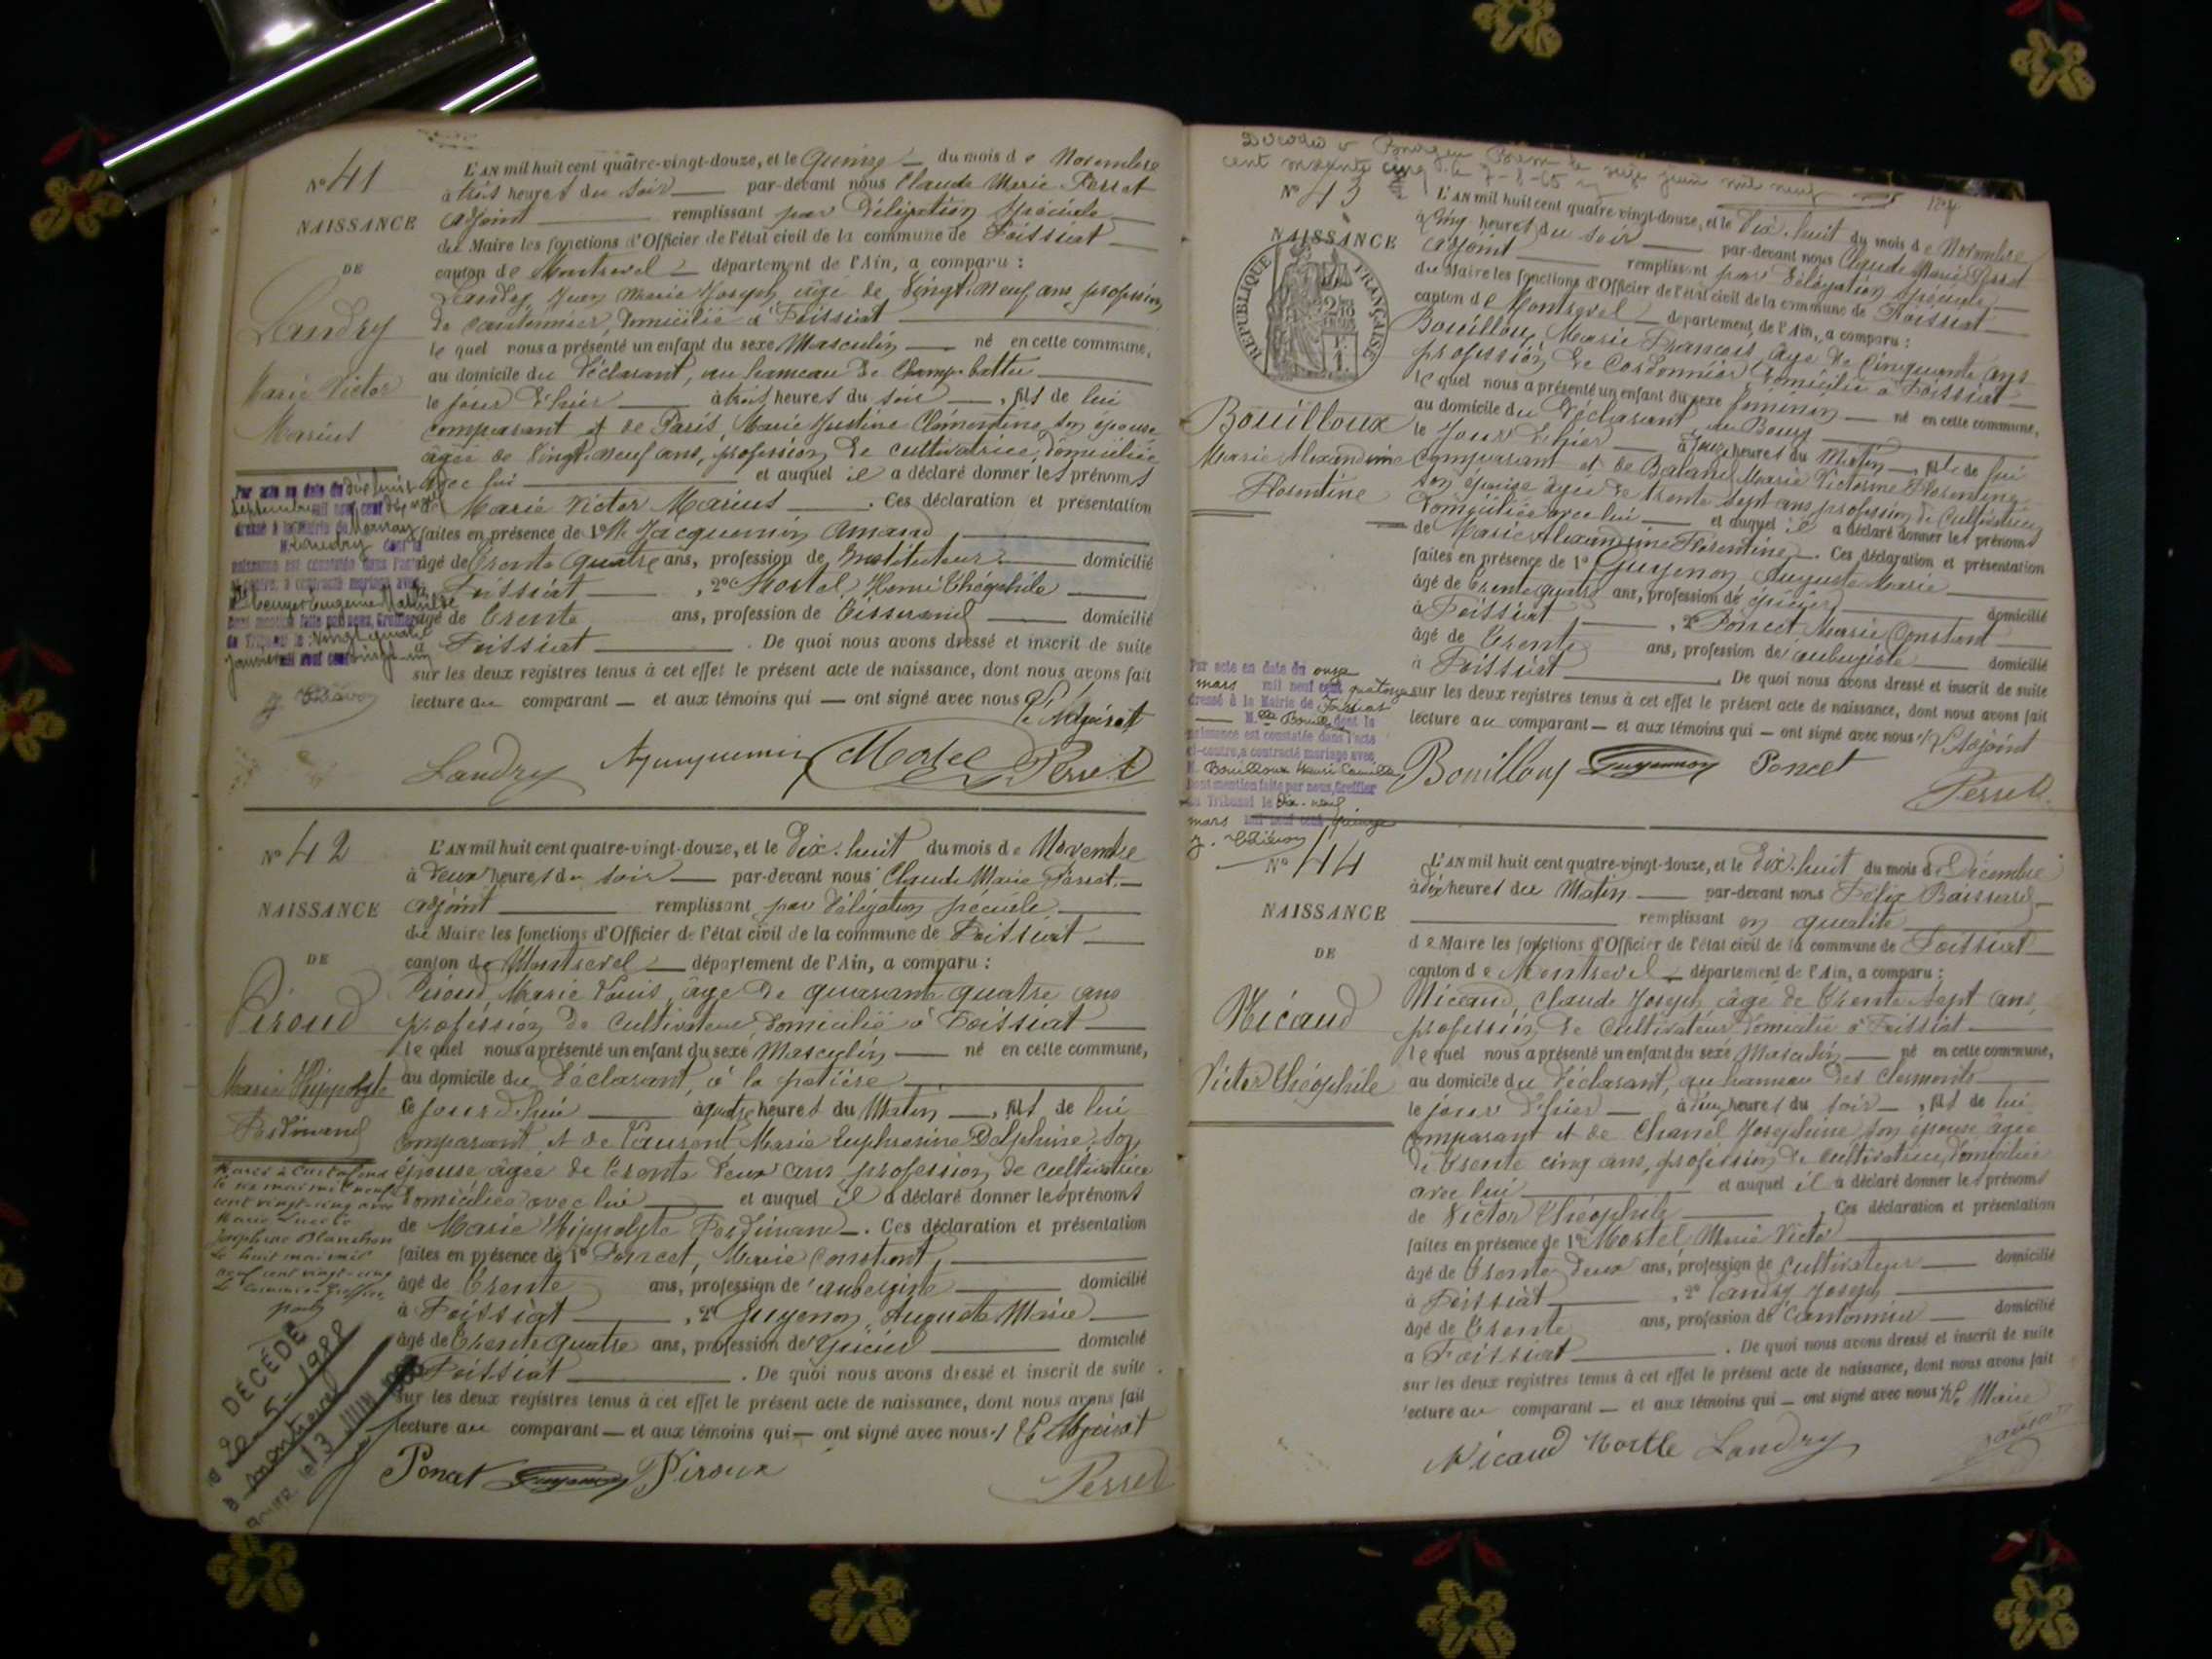 N° 41
NAISSANCE
DE
Landry
Marie Victor
Marius
L'AN mil huit cent quatre-vingt-douze, et le quinze du mois de Novembre
à trois heures du soir par-devant nous Claude Marie Perret
adjoint remplissant par délégation spéciale
du Maire les fonctions d'Officier de l'état civil de la commune de Foissiat
canton de Montrevel département de l'Ain, a comparu :
Landry, Jean Marie Joseph, âgé de vingt-neuf ans, profession
de cantonnier, domicilié à Foissiat
le quel nous a présenté un enfant du sexe Masculin né en cette commune,
au domicile du déclarant, au hameau de
le jour d'hier à trois heures du soir, fils de lui
comparant et de Paris, Marie Justine Clémentine, son épouse
âgée de vingt-neuf ans, profession de cultivatrice, domiciliée
avec lui et auquel il a déclaré donner les prénoms
de Marie Victor Marius. Ces déclaration et présentation
faites en présence de 1° Jacquemin Amand
âgé de trente quatre ans, profession de Instituteur domicilié
à Foissiat, 2° Mortel, Henri Théophile
âgé de trente ans, profession de Tisserand domicilié
à Foissiat. De quoi nous avons dressé et inscrit de suite
sur les deux registres tenus à cet effet le présent acte de naissance, dont nous avons fait
lecture au comparant et aux témoins qui ont signé avec nous
Landry Jacquemin Mortel Perret
Par acte en date du dix huit
septembre mil neuf cent
dressé à la Mairie de Marnay
M. Landry dont la
naissance est constatée dans l'acte
ci-contre, a contracté mariage avec
Eugénie
Dont mention faite par nous, Greffier
du Tribunal le vingt quatre
janvier mil neuf cent vingt un
N° 42
NAISSANCE
DE
Piroud
Marie Hippolyte
Ferdinand
L'AN mil huit cent quatre-vingt-douze, et le dix-huit du mois de Novembre
à deux heures du soir par-devant nous Claude Marie Perret
adjoint remplissant par délégation spéciale
du Maire les fonctions d'Officier de l'état civil de la commune de Foissiat
canton de Montrevel département de l'Ain, a comparu :
Piroud, Marie Louis, âgé de quarante quatre ans
profession de cultivateur domicilié à Foissiat
le quel nous a présenté un enfant du sexe Masculin né en cette commune,
au domicile du déclarant, à la
le jour d'hui à quatre heures du Matin, fils de lui
comparant, et de Laurent, Marie Euphrosine Delphine, son
épouse âgée de trente deux ans, profession de cultivatrice
domiciliée avec lui et auquel il a déclaré donner les prénoms
de Marie Hippolyte Ferdinand. Ces déclaration et présentation
faites en présence de 1° Poncet, Marie Constant,
âgé de trente ans, profession de aubergiste domicilié
à Foissiat, 2° Guyenon, Auguste Marie
âgé de trente quatre ans, profession de épicier domicilié
à Foissiat. De quoi nous avons dressé et inscrit de suite
sur les deux registres tenus à cet effet le présent acte de naissance, dont nous avons fait
lecture au comparant et aux témoins qui ont signé avec nous
Poncet Guyenon Piroux
Perret
le six mai mil neuf
cent vingt-cinq avec
Joséphine Blanchon
le huit mai mil
neuf cent vingt-cinq
DÉCÉDÉ
à Montrevel
le 13 JUIN 1988
Décédé à Bourg en Bresse le seize juin mil neuf
cent soixante cinq le 7-8-65
N° 43
NAISSANCE
RÉPUBLIQUE FRANÇAISE
Bouilloux
Marie Alexandrine
Florentine
L'AN mil huit cent quatre-vingt-douze, et le dix-huit du mois de Novembre
à cinq heures du soir par-devant nous Claude Marie Perret
adjoint remplissant par délégation spéciale
du Maire les fonctions d'Officier de l'état civil de la commune de Foissiat
canton de Montrevel département de l'Ain, a comparu :
Bouilloux, Marie François, âgé de cinquante ans
profession de Cordonnier, domicilié à Foissiat
le quel nous a présenté un enfant du sexe féminin né en cette commune,
au domicile du déclarant, au Bourg
le jour d'hier à onze heures du Matin, fille de lui
comparant et de Baland, Marie Victorine Florentine
son épouse âgée de trente sept ans, profession de cultivatrice
domiciliée avec lui et auquel il a déclaré donner les prénoms
de Marie Alexandrine Florentine. Ces déclaration et présentation
faites en présence de 1° Guyenon, Auguste Marie
âgé de trente quatre ans, profession de épicier domicilié
à Foissiat, 2° Poncet Marie Constant
âgé de trente ans, profession de aubergiste domicilié
à Foissiat. De quoi nous avons dressé et inscrit de suite
sur les deux registres tenus à cet effet le présent acte de naissance, dont nous avons fait
lecture au comparant et aux témoins qui ont signé avec nous L'adjoint
Bouilloux Guyennon Poncet
Perret
Par acte en date du onze
mars mil neuf cent quatorze
dressé à la Mairie de Foissiat
dont la
naissance est constatée dans l'acte
ci-contre, a contracté mariage avec
M. Bouilloux Henri Camille
Dont mention faite par nous, Greffier
du Tribunal le dix-neuf
mars mil neuf cent
N° 44
NAISSANCE
DE
Nicaud
Victor Théophile
L'AN mil huit cent quatre-vingt-douze, et le dix-huit du mois de Décembre
à dix heures du Matin par-devant nous Félix Baissard
remplissant en qualité
de Maire les fonctions d'Officier de l'état civil de la commune de Foissiat
canton de Montrevel département de l'Ain, a comparu :
Nicaud, Claude Joseph, âgé de trente sept ans,
profession de cultivateur, domicilié à Foissiat
le quel nous a présenté un enfant du sexe Masculin né en cette commune,
au domicile du déclarant, au hameau des Clermonts
le jour d'hier à deux heures du soir, fils de lui
comparant et de Chanel Joséphine, son épouse âgée
de trente cinq ans, profession de cultivatrice, domiciliée
avec lui et auquel il a déclaré donner les prénoms
de Victor Théophile Ces déclaration et présentation
faites en présence de 1° Mortel Marie Victor
âgé de trente deux ans, profession de cultivateur domicilié
à Foissiat, 2° Landry Joseph
âgé de trente ans, profession de Cantonnier domicilié
à Foissiat. De quoi nous avons dressé et inscrit de suite
sur les deux registres tenus à cet effet le présent acte de naissance, dont nous avons fait
lecture au comparant et aux témoins qui ont signé avec nous Le Maire
Nicaud Landry